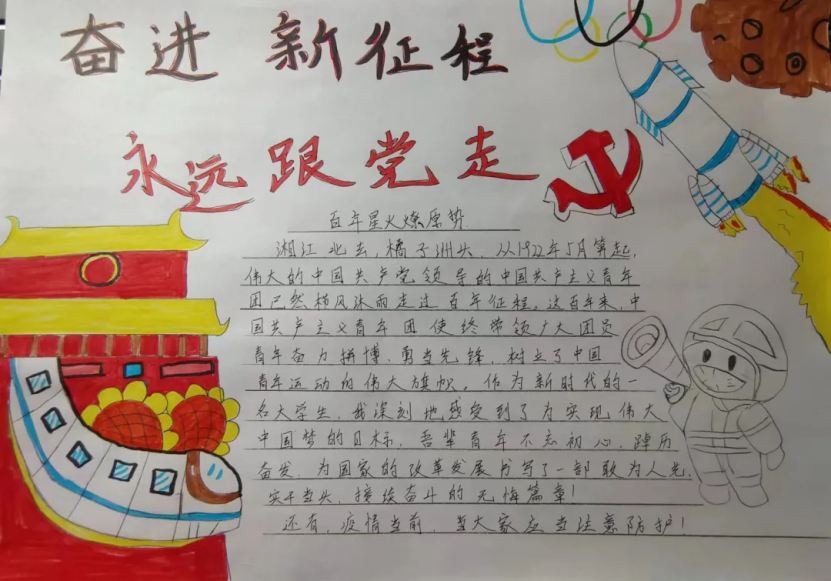 奋进 新征程
永远跟党走
百年星火燎原势
湘江北去,橘子洲头,从1922年5月算起,
伟大的中国共产党领导的中国共产主义青年
团已然栉风沐雨走过百年征程。这百年来,中
国共产主义青年团使终带领广大团员
青年奋力拼搏、勇当先锋,树立了中国
青年运动的伟大旗帜。作为新时代的一
名大学生,我深刻地感受到了为实现伟大
中国梦的目标,吾辈青年不忘初心,踔厉
奋发,为国家的改革发展书写了一部敢为人先,
实干当头,接续奋斗的无悔篇章!
还有,疫情当前,望大家应当注意防护!